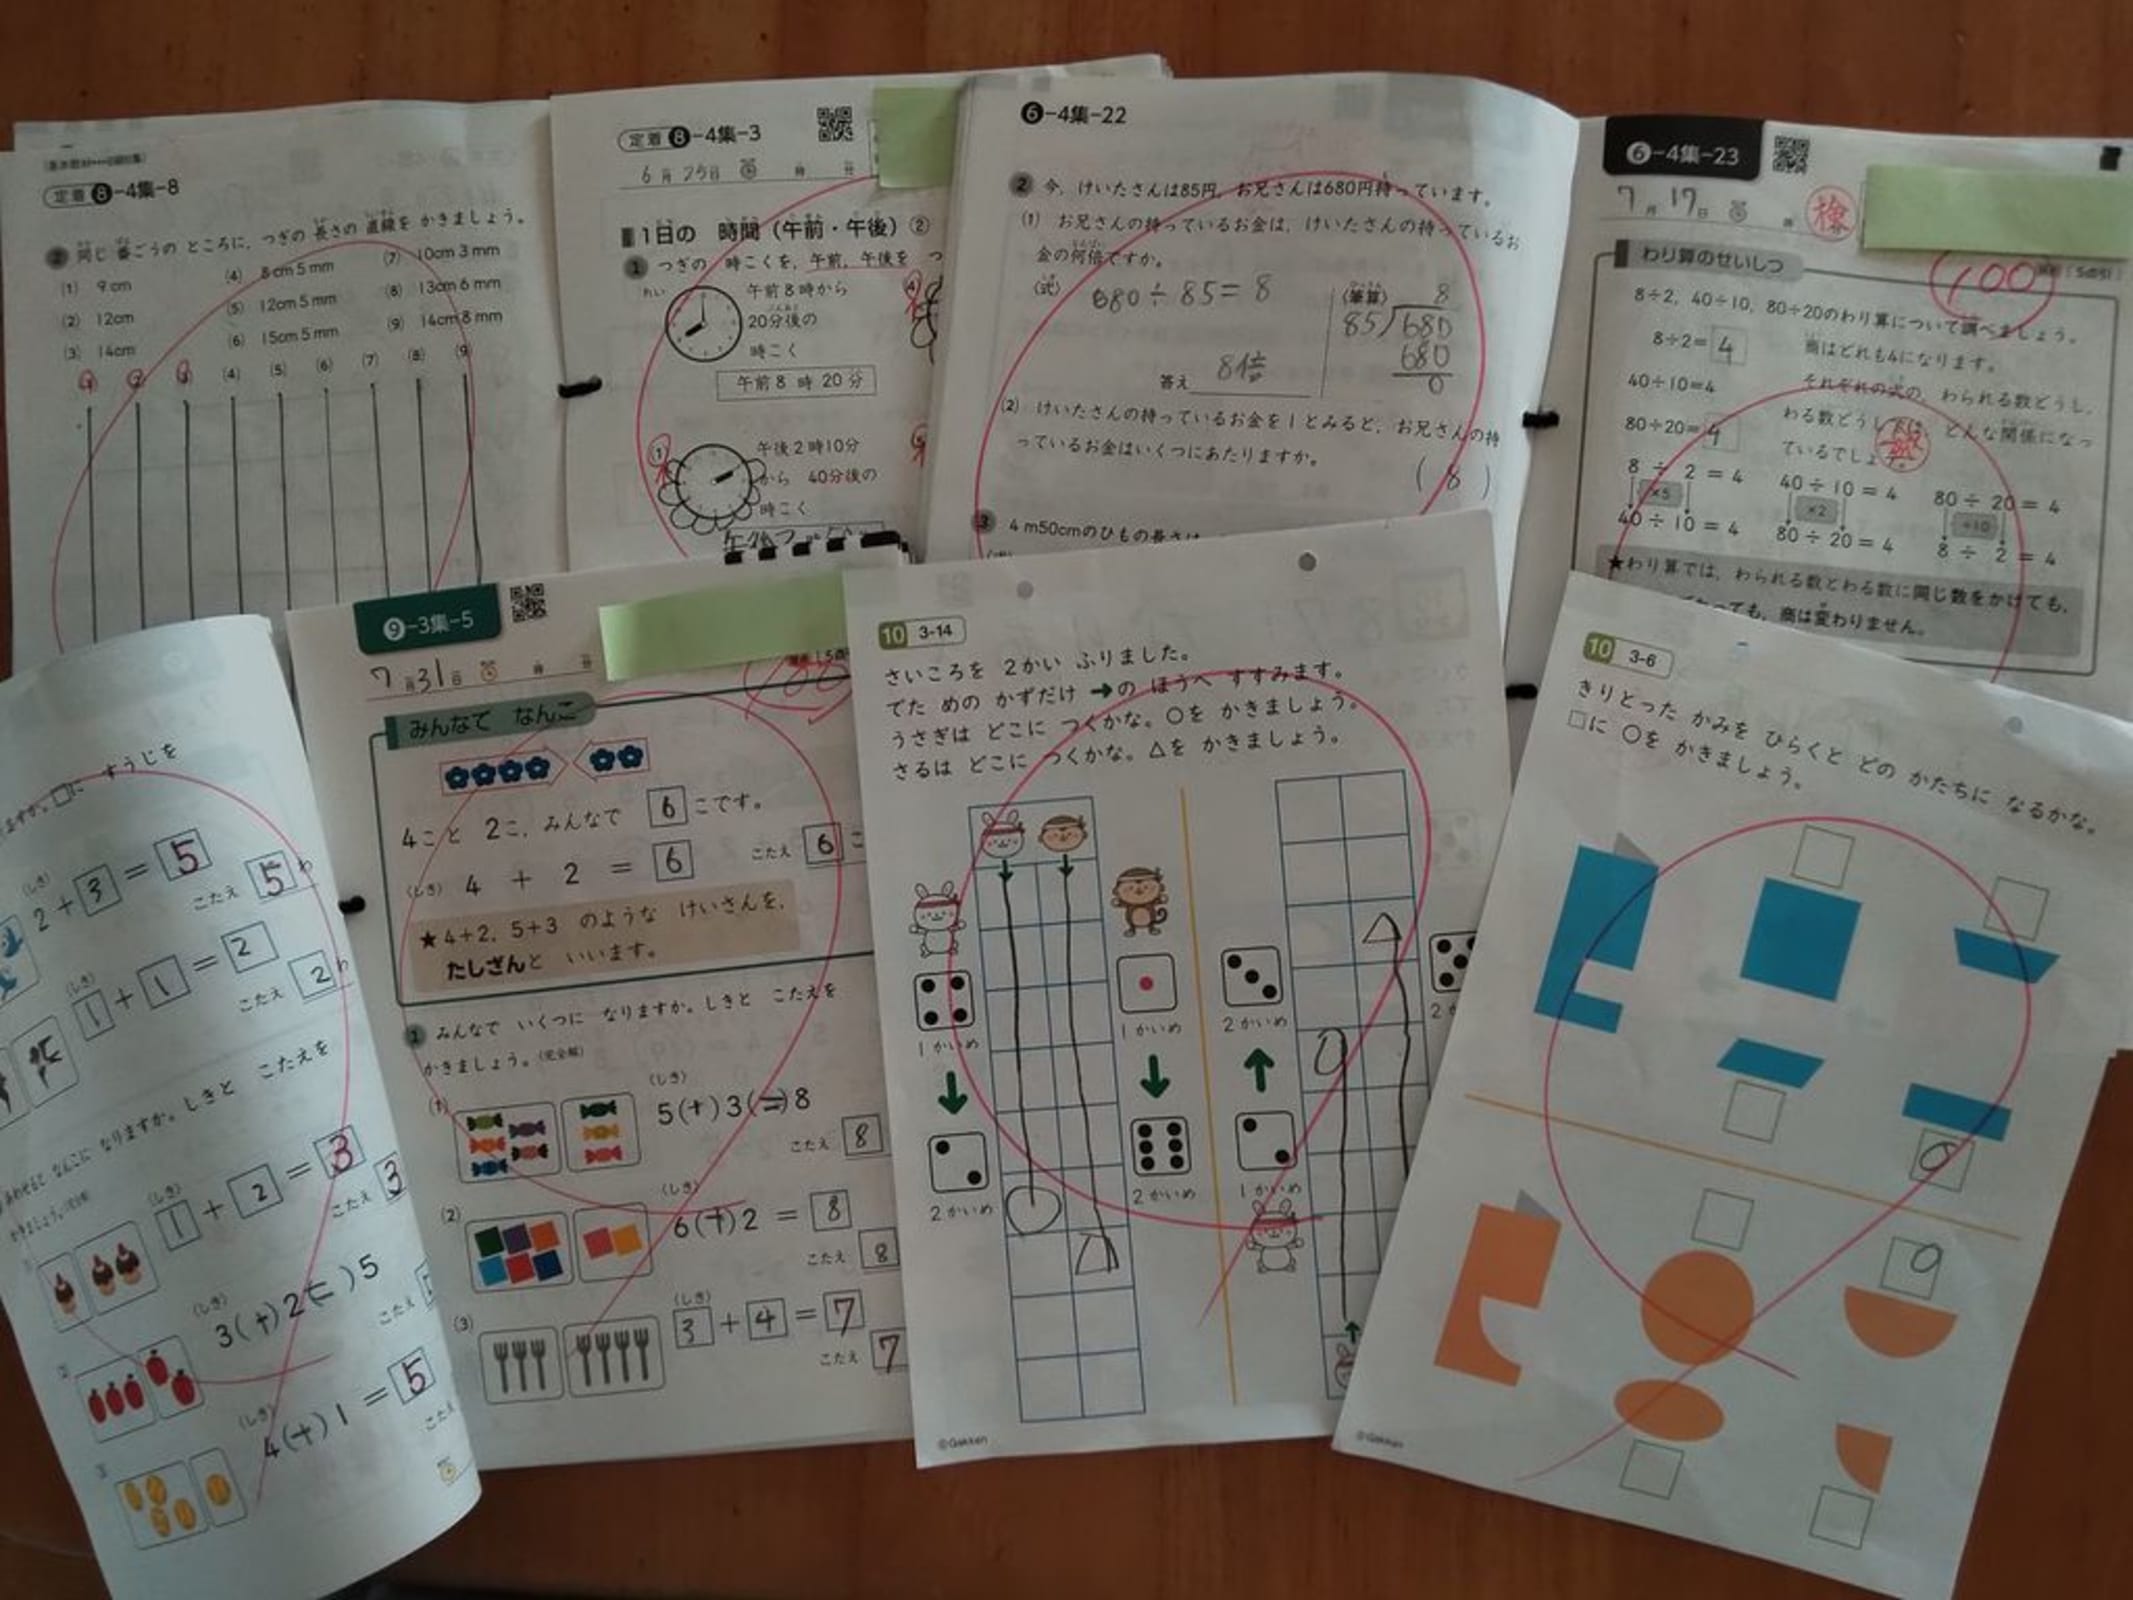 定着 8-4集-8
2 同じ 番ごうの ところに、つぎの 長さの 直線を かきましょう。
(1) 9cm
(2) 12cm
(3) 14cm
(4) 8cm 5mm
(5) 12cm 5mm
(6) 15cm 5mm
(7) 10cm 3mm
(8) 13cm 6mm
(9) 14cm 8mm
(4) (5) (6) (7) (8) (9)
定着 8-4集-3
6月25日 時 分
1日の 時間（午前・午後）②
1 つぎの 時こくを、午前、午後を つ
れい
午前8時から
20分後の
時こく
午前8時20分
(4)
(1)
午後2時10分
から 40分後の
時こく
6-4集-22
2 今、けいたさんは85円、お兄さんは680円持っています。
(1) お兄さんの持っているお金は、けいたさんの持っているお
金の何倍ですか。
(式) 680÷85=8
(筆算) 8
85)680
680
0
答え 8倍
(2) けいたさんの持っているお金を1とみると、お兄さんの持
っているお金はいくつにあたりますか。
( 8 )
3 4m50cmのひもの長さは
6-4集-23
7月17日 時
100
わり算のせいしつ
8÷2, 40÷10, 80÷20のわり算について調べましょう。
8÷2=4
40÷10=4
80÷20=4
商はどれも4になります。
それぞれの式の、わられる数どうし、
わる数どうしは、どんな関係になっ
ているでしょ
8 ÷ 2 = 4
×5
40 ÷ 10 = 4
40 ÷ 10 = 4
×2
80 ÷ 20 = 4
80 ÷ 20 = 4
÷10
8 ÷ 2 = 4
★わり算では、わられる数とわる数に同じ数をかけても、
ても、商は変わりません。
ますか。□に すうじを
(しき)
2+3=5
こたえ 5わ
(しき)
1+1=2
こたえ 2わ
あわせると なんこに なりますか。しきと こたえを
かきましょう。
(しき)
1+2=3
こたえ 3
(しき)
3(+)2(=)5
こたえ
(しき)
4(+)1=5
こたえ
9-3集-5
7月31日 時 分
100
みんなで なんこ
4こと 2こ、みんなで 6こです。
(しき) 4 + 2 = 6
こたえ 6こ
★4+2, 5+3 のような けいさんを、
たしざんと いいます。
1 みんなで いくつに なりますか。しきと こたえを
かきましょう。(完全解)
(1)
(しき)
5(+)3(=)8
こたえ 8
(2)
(しき)
6(+)2 = 8
こたえ 8
(3)
(しき)
3+4=7
こたえ 7
10 3-14
さいころを 2かい ふりました。
でた めの かずだけ →の ほうへ すすみます。
うさぎは どこに つくかな。○を かきましょう。
さるは どこに つくかな。△を かきましょう。
1かいめ
2かいめ
1かいめ
2かいめ
2かいめ
1かいめ
2か
©Gakken
10 3-6
きりとった かみを ひらくと どの かたちに なるかな。
□に ○を かきましょう。
©Gakken